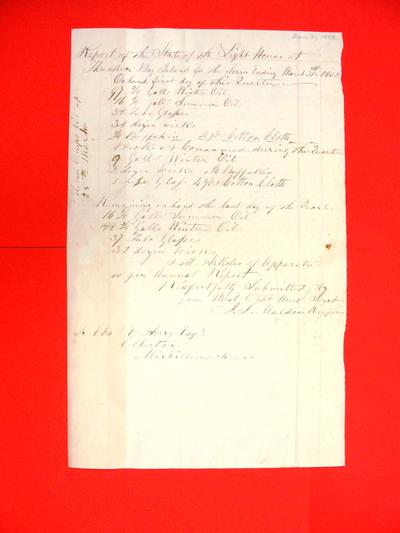 Report of the State of the Light House at
Thunder Bay Island for the Term Ending March 31st 1852
On hand first day of this Quarter
Galls Winter Oil
16 Galls Summer Oil
Tube Glasses
34 dozen wicks
Buffskin Cotton Cloth
Broken & Consumed during the Quarter
9 Galls Winter Oil
2 dozen Wicks Buffskin
1 Tube Glass 4 yds Cotton Cloth
Remaining on hand the last day of the Quarter
16 Galls Summer Oil
48 Galls Winter Oil
37 Tube Glasses
32 dozen Wicks
& all Articles of Apparatus
as per Annual Report
Respectfully Submitted by
your Most Obt Humb Servt
J. J. Malden Keeper
To Chas Avery Esqr
Collector
Michilimackinac